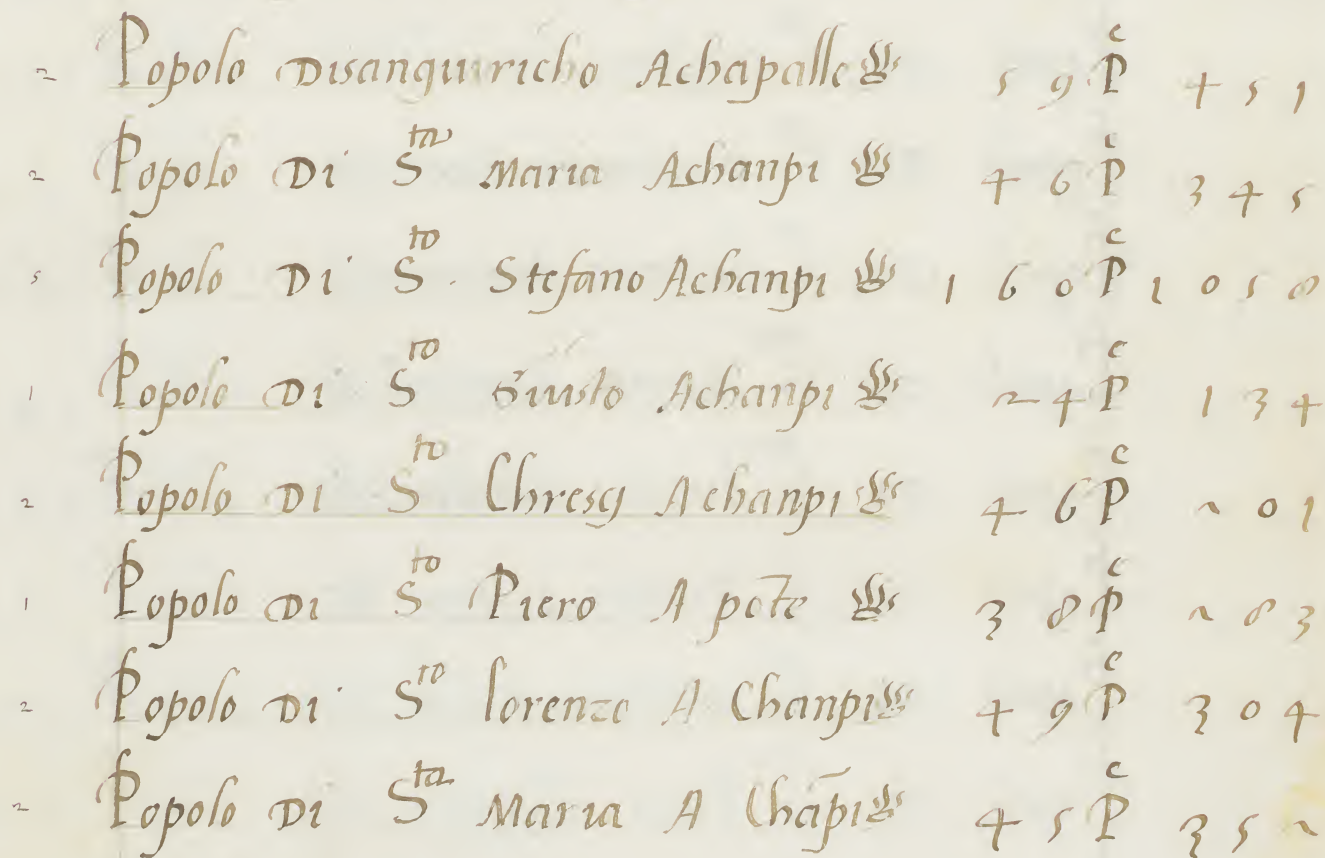 2 Popolo Disanquiricho Achapalle 59 Pᶜ 451
2 Popolo Di Sᵗᵃ Maria Achanpi 46 Pᶜ 345
5 Popolo Di Sᵗᵒ Stefano Achanpi 160 Pᶜ 1058
1 Popolo Di Sᵗᵒ Giusto Achanpi 24 Pᶜ 134
2 Popolo Di Sᵗᵒ Chresci Achanpi 46 Pᶜ 201
1 Popolo Di Sᵗᵒ Piero A pōte 38 Pᶜ 283
2 Popolo Di Sᵗᵒ lorenzo A Chanpi 49 Pᶜ 304
2 Popolo Di Sᵗᵃ Maria A Chāpi 45 Pᶜ 352